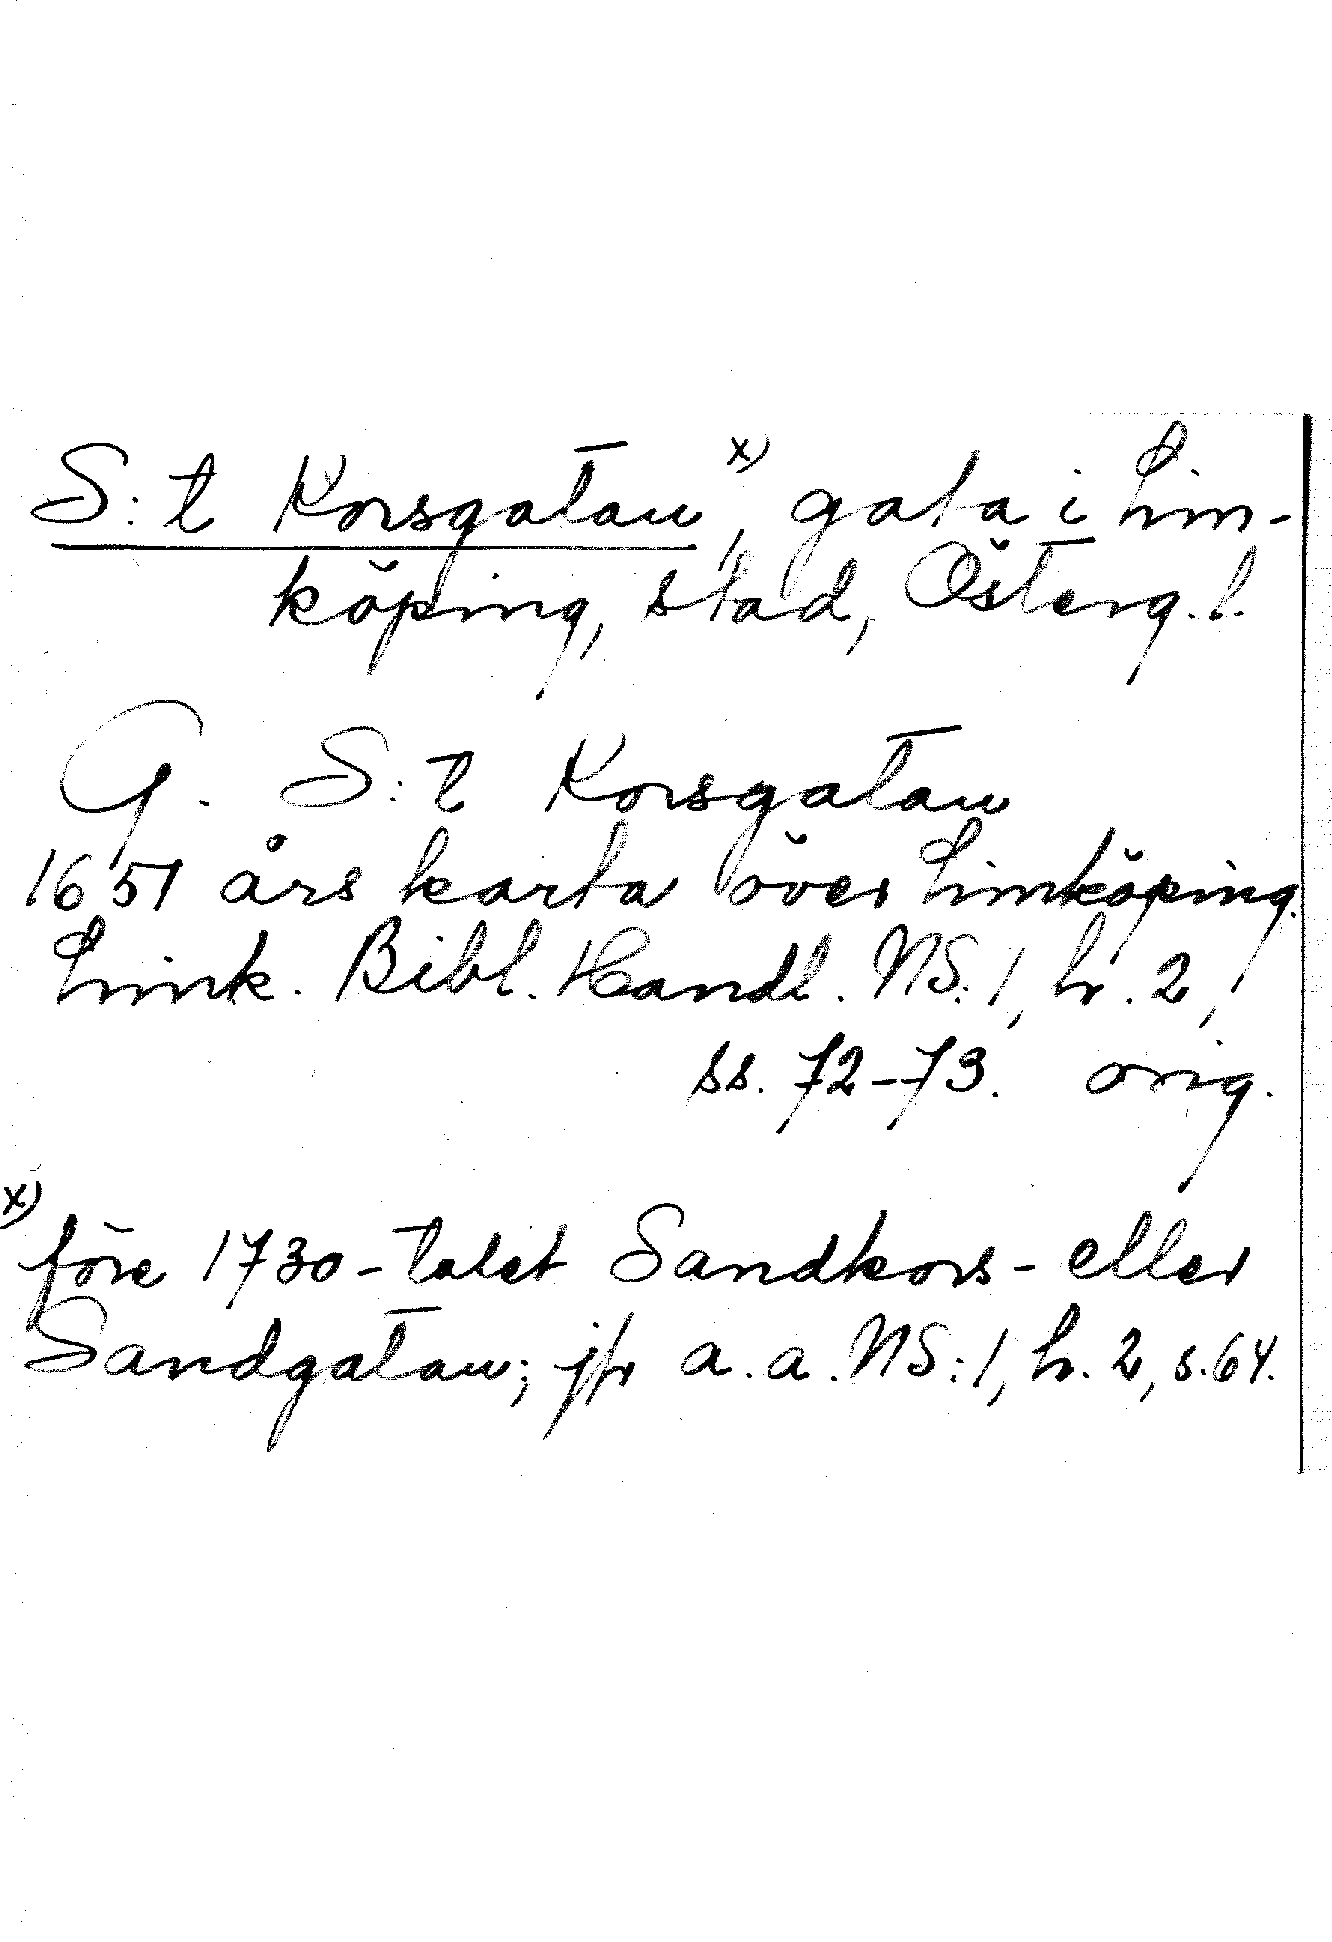 S:t Korsgatan x), gata i Lin-
köping, stad, Österg. l.
G. S:t Korsgatan
1651 års karta över Linköping.
Link. Bibl. Handl. NS:1, h. 2,
ss. 72-73. orig.
x) före 1730-talet Sandkors- eller
Sandgatan; jfr a.a. NS:1, h. 2, s. 64.